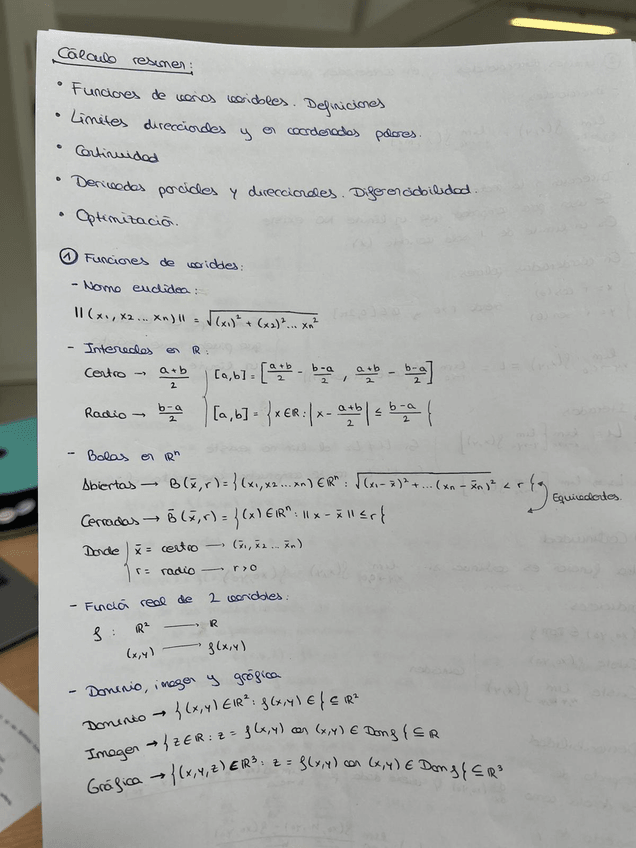 Cálculo resumen:
• Funciones de varias variables. Definiciones
• Límites direccionales y en coordenadas polares.
• Continuidad
• Derivadas parciales y direccionales. Diferenciabilidad.
• Optimización.
① Funciones de variables:
- Norma euclídea:
||(x₁, x₂ ... xₙ)|| = √((x₁)² + (x₂)² ... xₙ²)
- Intervalos en ℝ:
Centro → (a+b)/2 | [a,b] = [(a+b)/2 - (b-a)/2 , (a+b)/2 - (b-a)/2]
Radio → (b-a)/2 | [a,b] = {x∈ℝ : |x - (a+b)/2| ≤ (b-a)/2}
- Bolas en ℝⁿ
Abiertas → B(x̄,r) = {(x₁,x₂...xₙ)∈ℝⁿ : √((x₁-x̄)² + ... (xₙ-x̄ₙ)²) < r} Equivalentes.
Cerradas → B̄(x̄,r) = {(x)∈ℝⁿ : ||x - x̄|| ≤ r}
Donde | x̄ = centro → (x̄₁, x̄₂ ... x̄ₙ)
r = radio → r>0
- Función real de 2 variables:
f : ℝ² → ℝ
(x,y) → f(x,y)
- Dominio, imagen y gráfica
Dominio → {(x,y)∈ℝ² : f(x,y) ∈} ⊆ ℝ²
Imagen → {z∈ℝ : z = f(x,y) con (x,y) ∈ Dom f} ⊆ ℝ
Gráfica → {(x,y,z)∈ℝ³ : z = f(x,y) con (x,y) ∈ Dom f} ⊆ ℝ³